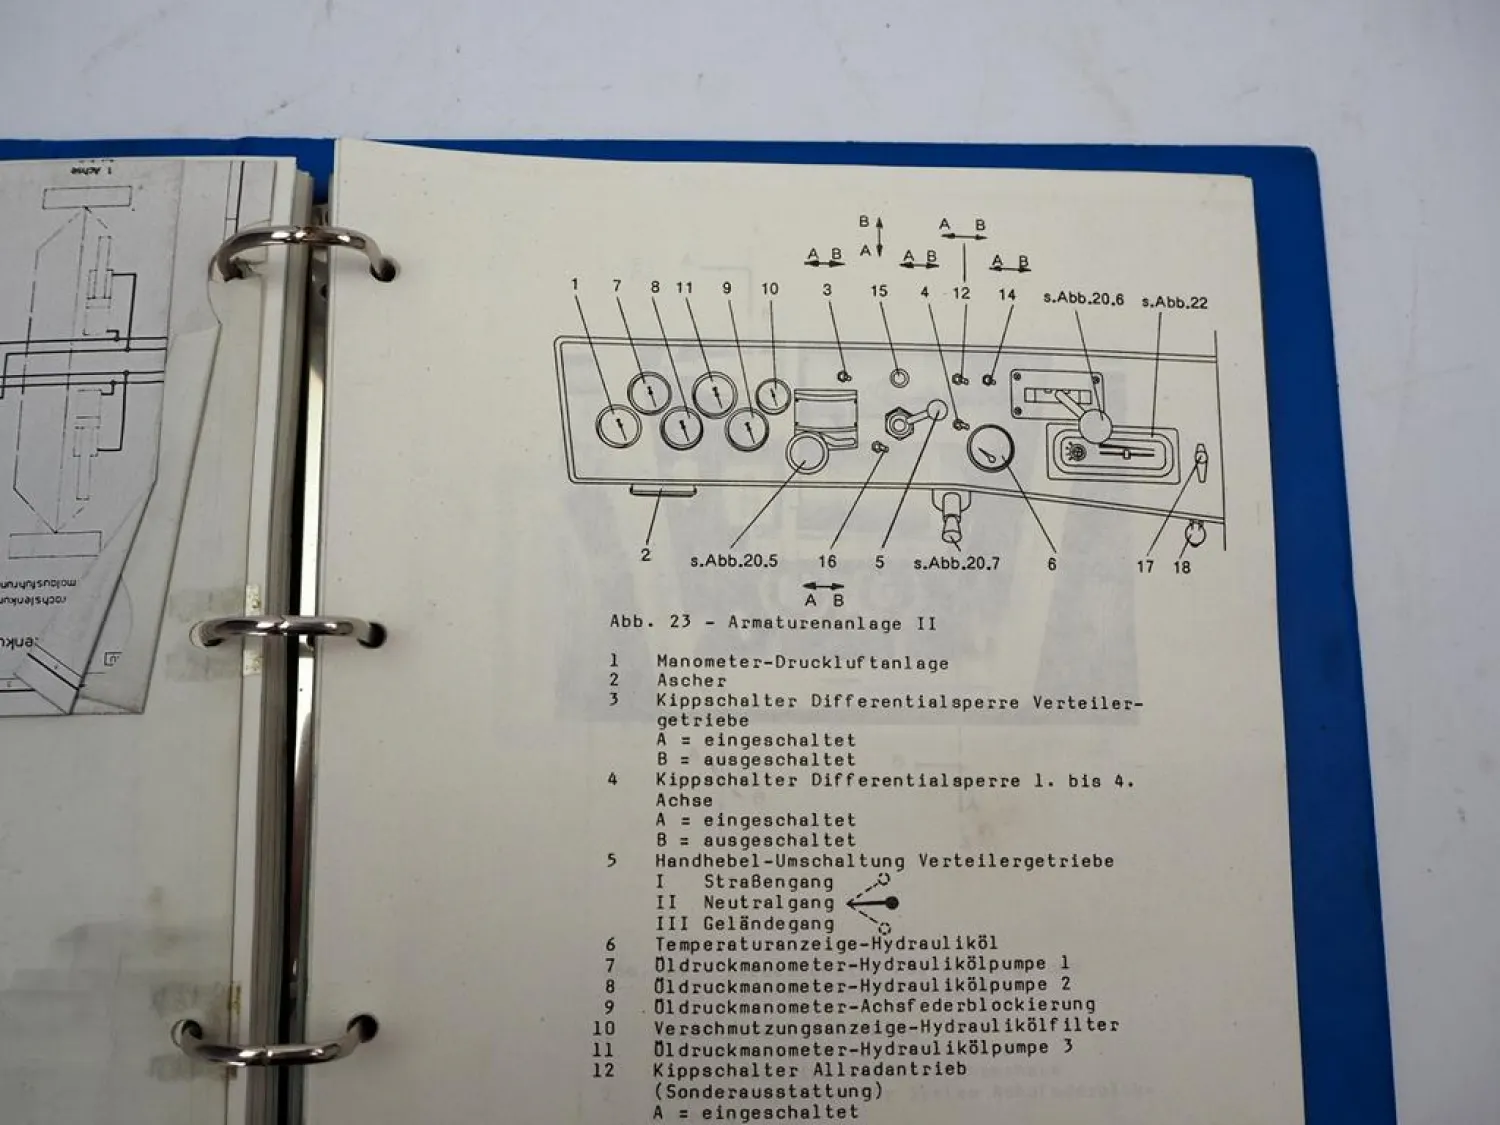 1 Achse
B
A B
A B
A
A B
A B
1 7 8 11 9 10 3 15 4 12 14 s.Abb.20.6 s.Abb.22
2 s.Abb.20.5 16 5 s.Abb.20.7 6 17 18
A B
Abb. 23 - Armaturenanlage II
1 Manometer-Druckluftanlage
2 Ascher
3 Kippschalter Differentialsperre Verteiler-
getriebe
A = eingeschaltet
B = ausgeschaltet
4 Kippschalter Differentialsperre 1. bis 4.
Achse
A = eingeschaltet
B = ausgeschaltet
5 Handhebel-Umschaltung Verteilergetriebe
I Straßengang
II Neutralgang
III Geländegang
6 Temperaturanzeige-Hydrauliköl
7 Öldruckmanometer-Hydraulikölpumpe 1
8 Öldruckmanometer-Hydraulikölpumpe 2
9 Öldruckmanometer-Achsfederblockierung
10 Verschmutzungsanzeige-Hydraulikölfilter
11 Öldruckmanometer-Hydraulikölpumpe 3
12 Kippschalter Allradantrieb
(Sonderausstattung)
A = eingeschaltet